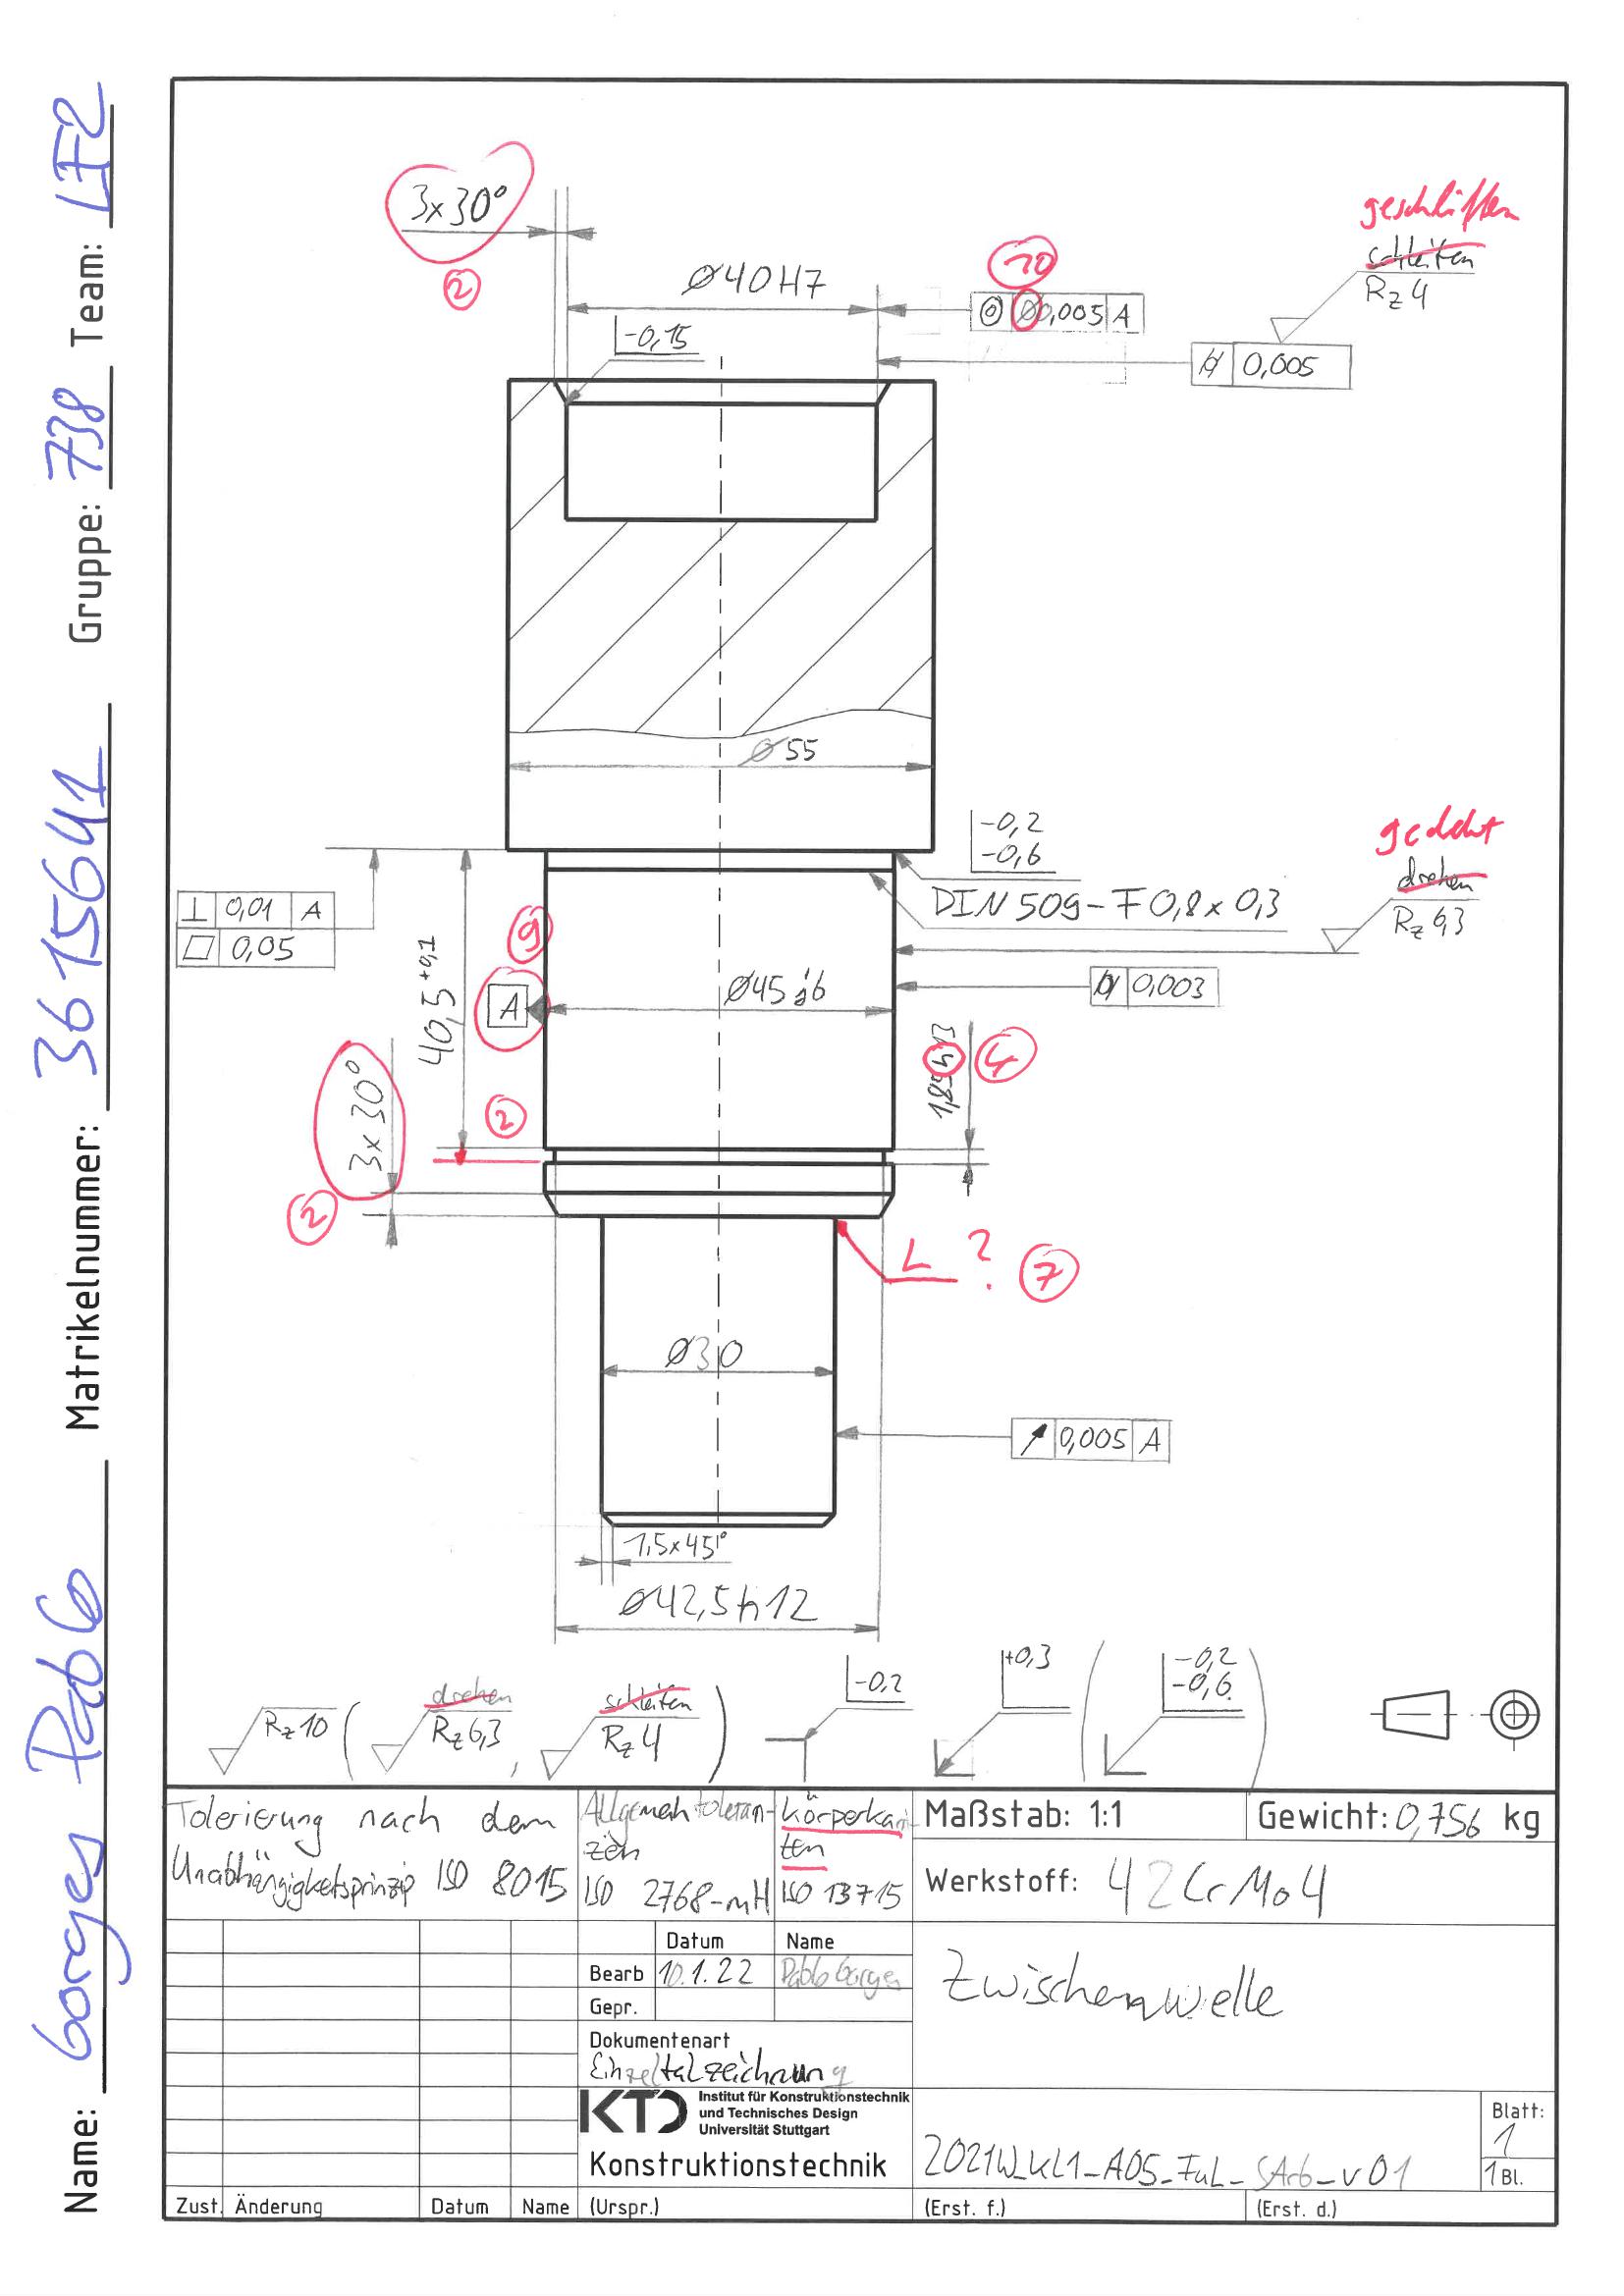 Name: Borges Pablo Matrikelnummer: 3615641 Gruppe: 738 Team: LF2
3x30°
2
Ø40H7
10
◎ Ø0,005 A
geschliffen
schleifen
Rz 4
-0,15
⌭ 0,005
Ø55
-0,2
-0,6
DIN 509-F 0,8 x 0,3
gedreht
drehen
Rz 6,3
⊥ 0,01 A
⏥ 0,05
40,5 +0,1
9
A
Ø45 j6
⌭ 0,003
1,85 H13
4
3x30°
2
2
L ?
7
Ø30
↗ 0,005 A
1,5x45°
Ø42,5 h12
Rz 10 ( drehen Rz 6,3 , schleifen Rz 4 )
-0,2
+0,3
( -0,2
-0,6 )
Tolerierung nach dem
Unabhängigkeitsprinzip ISO 8015
Allgemeintoleran-
zen
ISO 2768-mH
Körperkan-
ten
ISO 13715
Maßstab: 1:1
Gewicht: 0,756 kg
Werkstoff: 42CrMo4
Datum Name
Bearb 10.1.22 Pablo Borges
Gepr.
Zwischenwelle
Dokumentenart
Einzelteilzeichnung
KTD
Institut für Konstruktionstechnik
und Technisches Design
Universität Stuttgart
Konstruktionstechnik
2021W_KL1_A05_FuL_SArb_v01
Blatt:
1
1 Bl.
Zust. Änderung Datum Name (Urspr.) (Erst. f.) (Erst. d.)